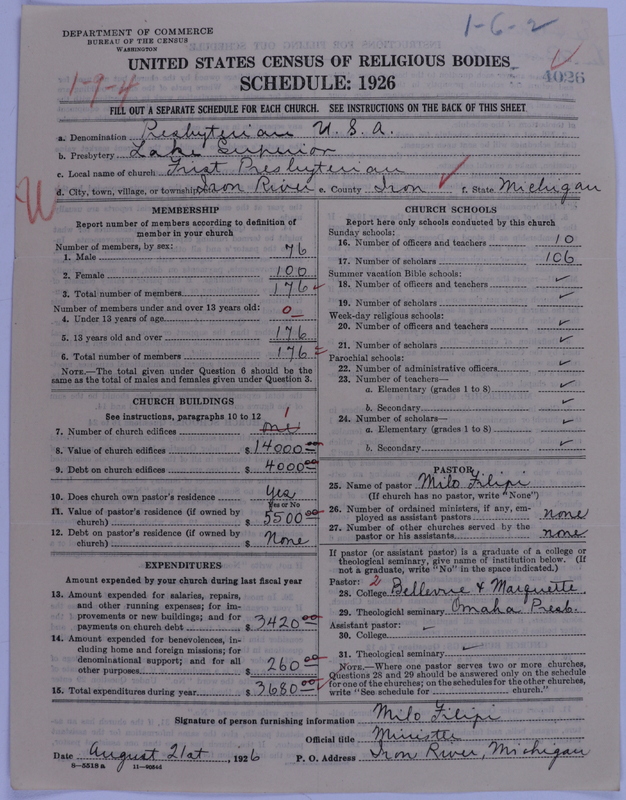 1-6-2
DEPARTMENT OF COMMERCE
BUREAU OF THE CENSUS
WASHINGTON
UNITED STATES CENSUS OF RELIGIOUS BODIES
SCHEDULE: 1926
1-9-4
4026
FILL OUT A SEPARATE SCHEDULE FOR EACH CHURCH. SEE INSTRUCTIONS ON THE BACK OF THIS SHEET
a. Denomination Presbyterian U.S.A.
b. Presbytery Lake Superior
c. Local name of church First Presbyterian
d. City, town, village, or township Iron River e. County Iron ✓ f. State Michigan
W
MEMBERSHIP
Report number of members according to definition of
member in your church
Number of members, by sex:
1. Male 76
2. Female 100
3. Total number of members 176 ✓
Number of members under and over 13 years old:
4. Under 13 years of age 0
5. 13 years old and over 176
6. Total number of members 176
NOTE.—The total given under Question 6 should be
same as the total of males and females given under Question 3.
CHURCH BUILDINGS
See instructions, paragraphs 10 to 12
7. Number of church edifices one 1
8. Value of church edifices $14000.00
9. Debt on church edifices $4000.00
10. Does church own pastor's residence Yes
Yes or No
11. Value of pastor's residence (if owned by
church) $5500.00
12. Debt on pastor's residence (if owned by
church) $None
EXPENDITURES
Amount expended by your church during last fiscal year
13. Amount expended for salaries, repairs,
and other running expenses; for im-
provements or new buildings; and for
payments on church debt $3420.00
14. Amount expended for benevolences, in-
cluding home and foreign missions; for
denominational support; and for all
other purposes $260.00
15. Total expenditures during year $3680.00
CHURCH SCHOOLS
Report here only schools conducted by this church
Sunday schools:
16. Number of officers and teachers 10
17. Number of scholars 106
Summer vacation Bible schools:
18. Number of officers and teachers ✓
19. Number of scholars ✓
Week-day religious schools:
20. Number of officers and teachers ✓
21. Number of scholars ✓
Parochial schools:
22. Number of administrative officers ✓
23. Number of teachers—
a. Elementary (grades 1 to 8) ✓
b. Secondary ✓
24. Number of scholars—
a. Elementary (grades 1 to 8) ✓
b. Secondary ✓
PASTOR
25. Name of pastor Milo Filipi
(If church has no pastor, write "None")
26. Number of ordained ministers, if any, em-
ployed as assistant pastors none
27. Number of other churches served by the
pastor or his assistants none
If pastor (or assistant pastor) is a graduate of a college or
theological seminary, give name of institution below. (If
not a graduate, write "No" in the space indicated.)
Pastor: 2
28. College Bellevue & Marquette
29. Theological seminary Omaha Presb.
Assistant pastor:
30. College ✓
31. Theological seminary ✓
NOTE.—Where one pastor serves two or more churches,
Questions 28 and 29 should be answered only on the schedule
for one of the churches; on the schedules for the other churches,
write "See schedule for church."
Signature of person furnishing information Milo Filipi
Official title Minister
Date August 21st, 1926 P. O. Address Iron River, Michigan
8-5518a